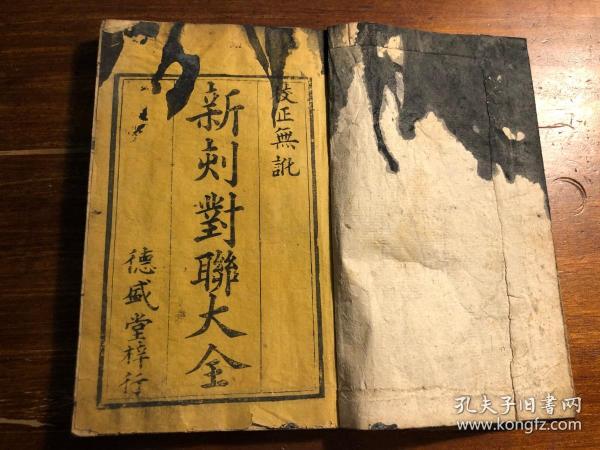 校正無訛
新刻對聯大全
德盛堂梓行
孔夫子旧书网
www.kongfz.com